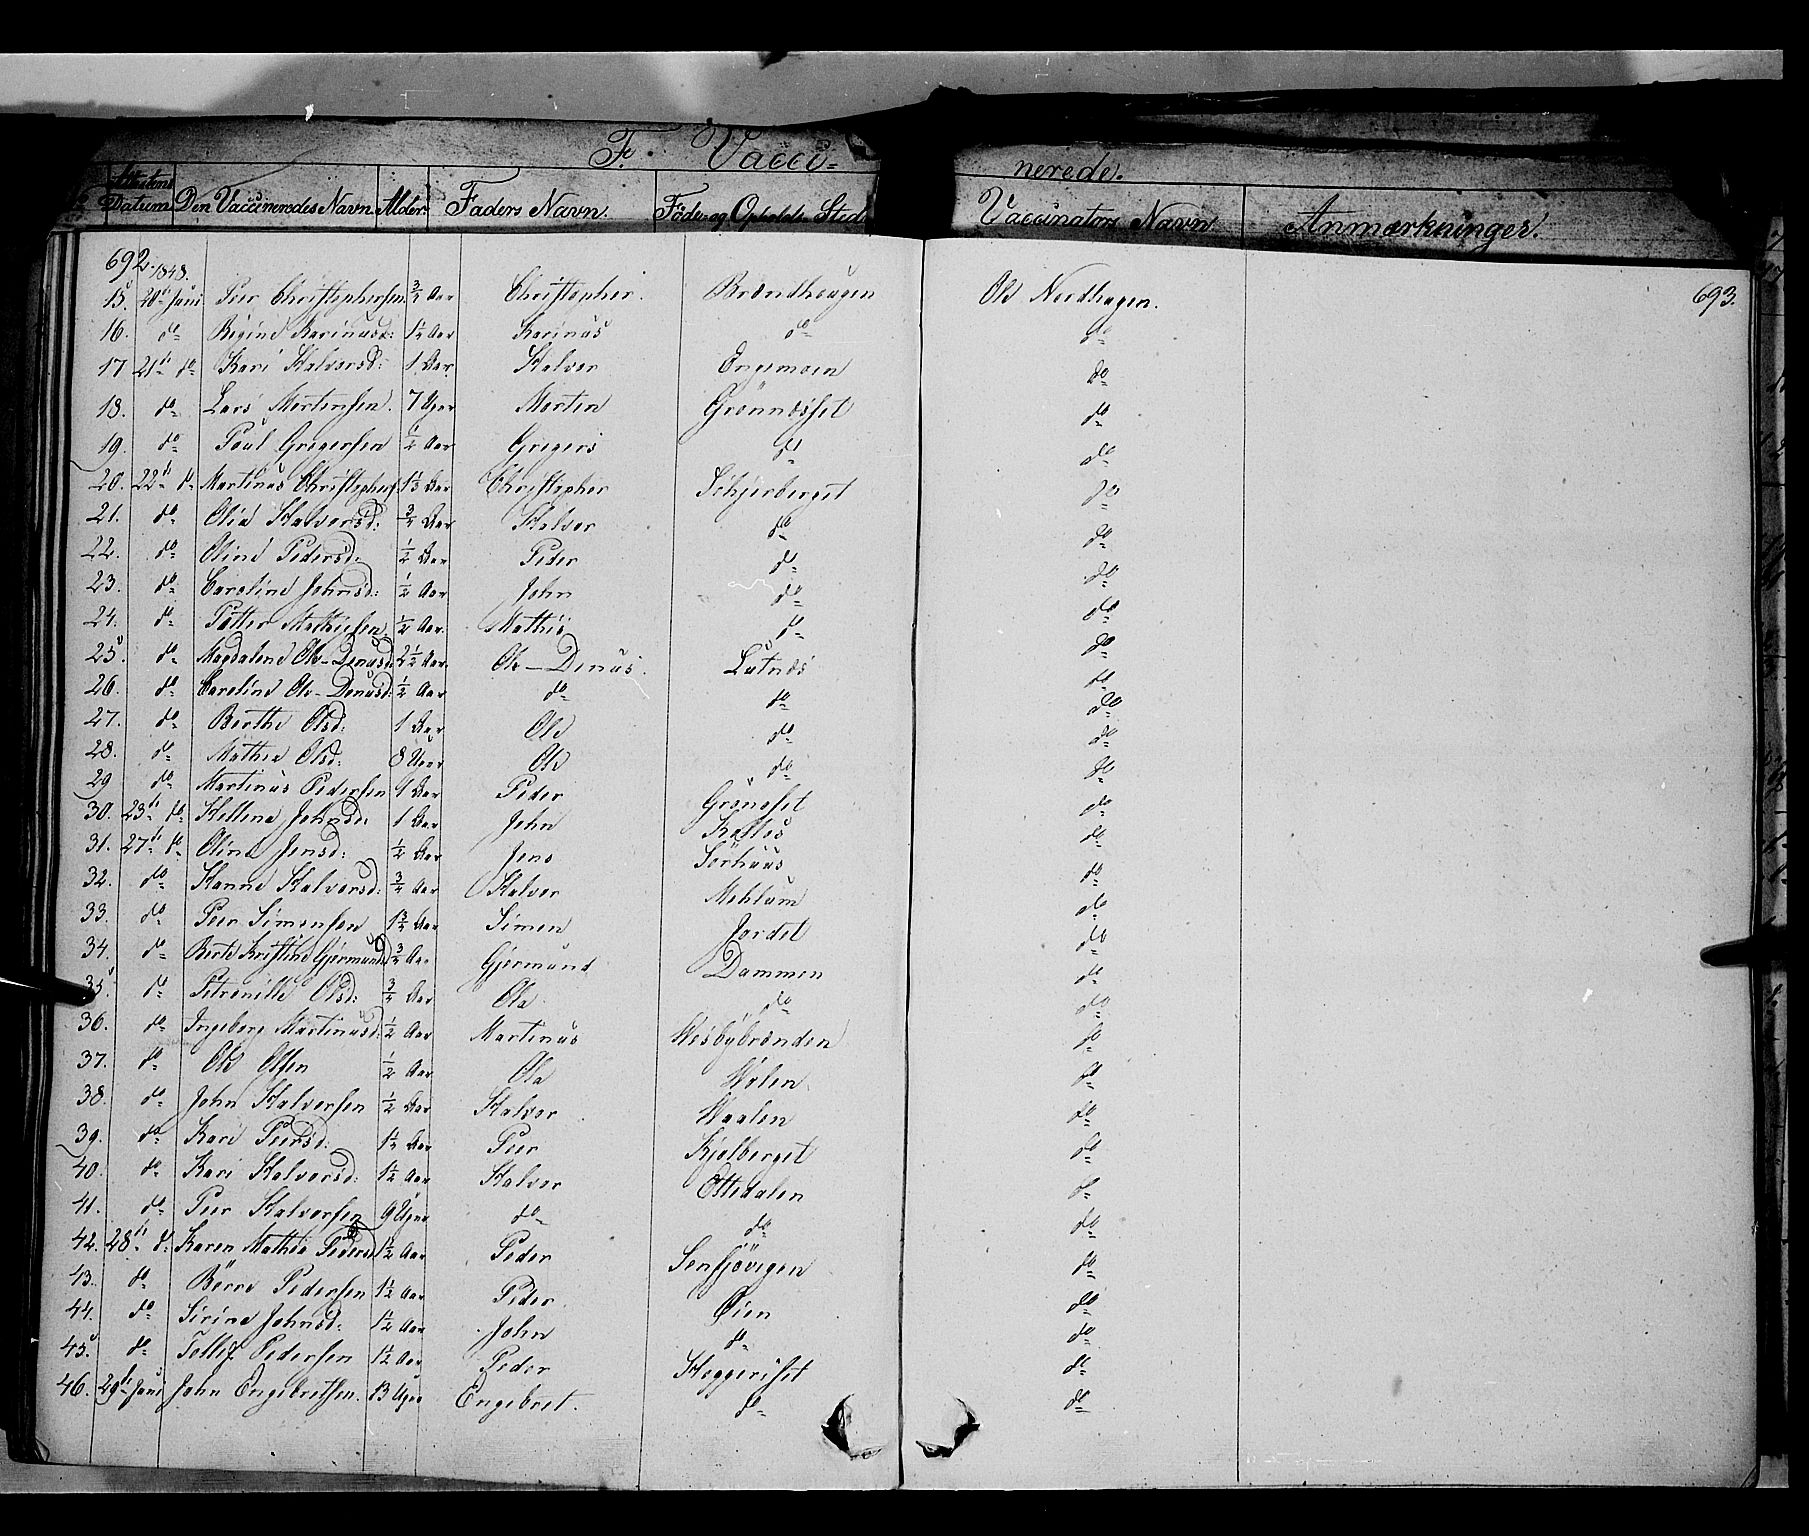 F. Vacci- nerede.
Attestens Datum. Den Vaccineredes Navn. Alder. Faders Navn. Føde- og Opholds Sted Vaccinators Navn Anmærkninger.
692. 1848. 693.
15. 20de Juni Peer Christophersen 3/4 Aar Christopher. Brændhaugen Ole Nordhagen.
16. do Karinusd: 1 1/2 Aar Karinus do do
17 21de do Kari Halvorsd: 1 Aar Halvor Ongemoen do
18. do Lars Mortensen. 7 Uger Morten Grønnæsset do
19. do Poul Gregersen 1/2 Aar Gregers do do
20. 22de do Martinus Christophers 1 1/2 Aar Christopher Schjærberget do
21. do Olea Halvorsd: 3/4 Aar Halvor do do
22. do Oline Pedersd: 1/2 Aar Peder do do
23. do Caroline Johnsd: 1/2 Aar John do do
24. do Petter Mathisen 1/2 Aar. Mathis do do
25. do Magdalene Ole-Denusd: 2 1/2 Aar. Ole-Denus. Lutnæs do
26. do Caroline Ole-Denusd: 1/2 Aar do do do
27. do Berthe Olsd: 1 Aar Ole do do
28. do Mathea Olsd: 8 Ole do do
29 do Martinus Pedersen 1 Aar Peder Grønæsset do
30. 23de do Hellene Johnsd: 1 Aar John do
31. 27de do Oline Jensd: 1/2 Aar Jens Sørhuus do
32. do Hanne Halvorsd: 3/4 Aar Halvor Mehlum do
33. do Peer Simensen 1 3/4 Aar Simen Jordet do
34. do Berte Kristine Gjermunds 3/4 Aar Gjermund Dammen do
35. do Petronille Olsd: 3/4 Aar Ola do do
36. do Ingeborg Martinusd: 1/2 Aar Martinus Nesbybrænden do
37. do Ole Olsen 1/2 Aar Ola do
38. do John Halvorsen 1/2 Aar Halvor do
39. do Kari Peersd: 1 1/2 Aar Peer Kjølberget do
40. do Kari Halvorsd: 1 1/2 Aar Halvor Ottedalen do
41. do Peer Halvorsen 9 Uger do do do
42. 28de do Karen Mathea Pedersd 1 1/2 Aar Peder Sensjøvigen do
43. do Børre Pedersen 1 1/2 Aar Peder Øien do
44. do Sirine Johnsd: 1 1/2 Aar John do do
45. do Tollef Pedersen 1 1/2 Aar Peder Heggeriset do
46. 29de Juni John Engebretsen. 13 Uger Engebret. do do